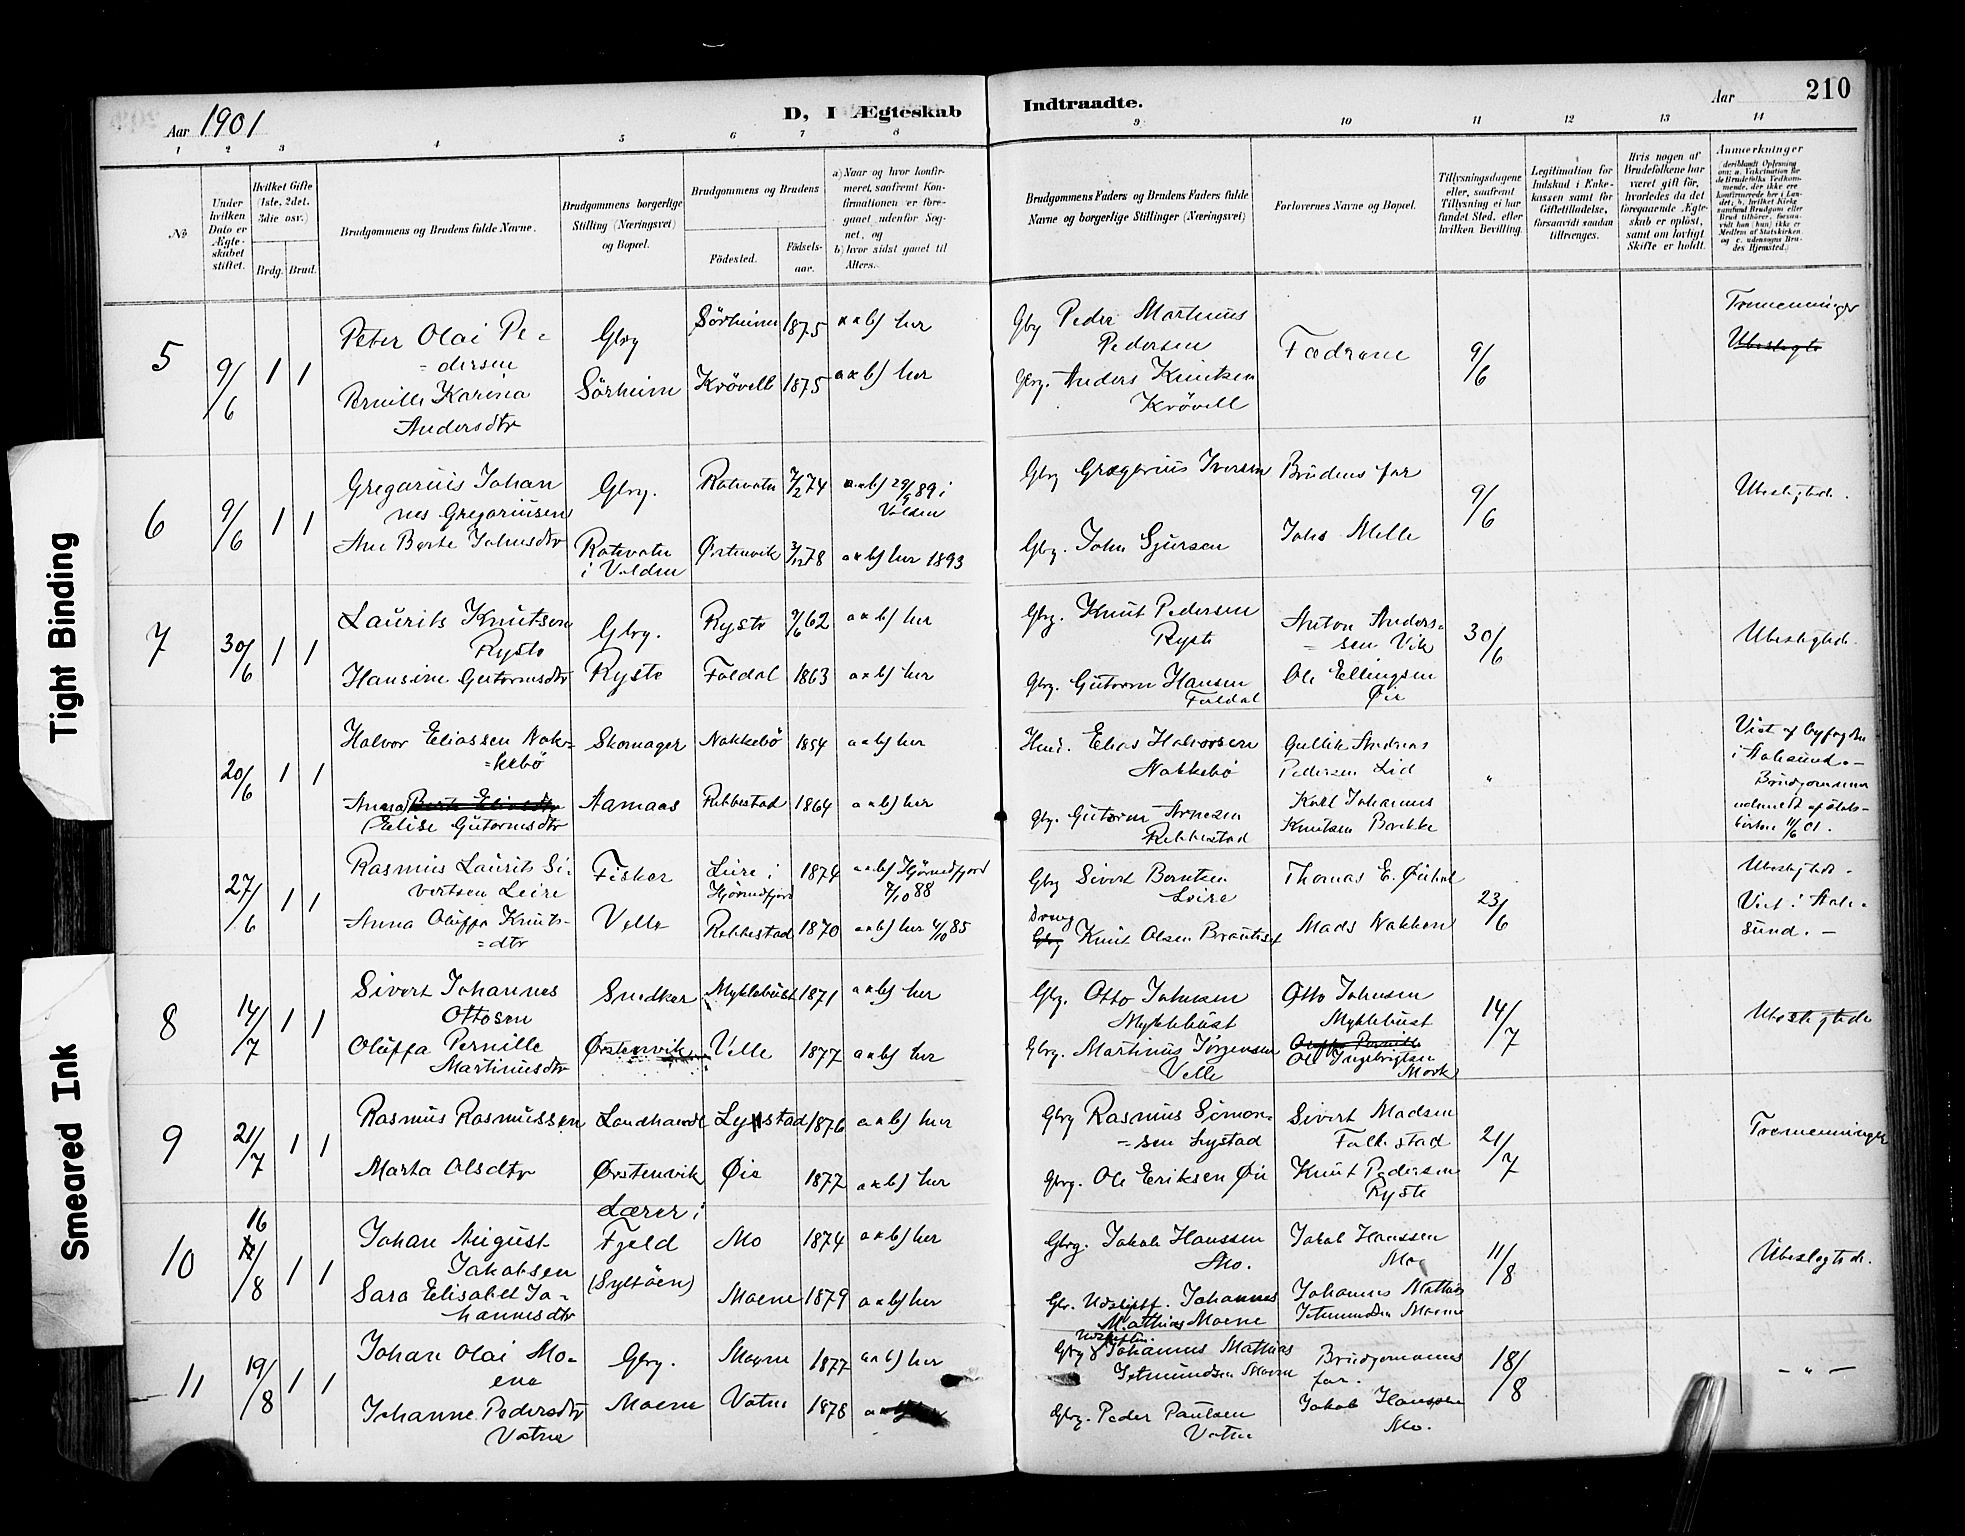 Aar 1901
D, I Ægteskab
Indtraadte.
Aar
210
1 2 3 4 5 6 7 8 9 10 11 12 13 14
No
Under hvilken Dato er Ægteskabet stiftet.
Hvilket Gifte (1ste, 2det, 3die osv.)
Brdg. Brud.
Brudgommens og Brudens fulde Navne.
Brudgommens borgerlige Stilling (Næringsvei) og Bopæl.
Brudgommens og Brudens
Fødested.
Fødselsaar.
a) Naar og hvor konfirmeret, saafremt Konfirmationen er foregaaet udenfor Sognet, og
b) hvor sidst gaaet til Alters.
Brudgommens Faders og Brudens Faders fulde Navne og borgerlige Stillinger (Næringsvei)
Forlovernes Navne og Bopæl.
Tillysningsdagene eller, saafremt Tillysning ei har fundet Sted, efter hvilken Bevilling.
Legitimation for Indskud i Enkekassen samt for Giftetilladelse, forsaavidt saadan tiltrænges.
Hvis nogen af Brudefolkene har været gift før, hvorledes da det foregaaende Ægteskab er opløst, samt om lovligt Skifte er holdt.
Anmærkninger
5
9/6
1 1
Peter Olai Pe-
=dersen
Pernille Karina
Andersdtr
Gbrg
Sørheim
Sørheim 1875 a x b) her
Krøvell 1875 a x b) her
Gbrg Peder Martinus
Pedersen
Gbrg. Anders Knutsen
Krøvell
Fædrene
9/6
Tremenninger
Ubeslegte
6
9/6
1 1
Gregarius Johan
nes Gregariusen
Ane Berte Johnsdtr
Gbrg.
Rotevatn
i Volden
Rotevatn 7/2 74 a x b) 29/9 89 i
Volden
Østenvik 3/12 78 a x b) her 1893
Gbrg Gregarius Iversen
Gbrg. John Sjursen
Brudens far
Johs Melle
9/6
Ubeslegtede.
7
30/6
1 1
Laurits Knutsen
Ryste
Hansine Gutormsdtr
Gbrg.
Ryste
Ryste 9/6 62 a x b) her
Foldal 1863 a x b) her
Gbrg. Knut Pedersen
Ryste
Gbrg. Gutorm Hansen
Foldal
Anton Anders-
=sen Vik
Ole Ellingsen
Øie
30/6
Ubeslegtede.
20/6
1 1
Halvor Eliassen Nak-
=kebø
Anna Berte Eliasdtr
Elise Gutormsdtr
Skomager
Aamaas
Nakkebø 1854 a x b) her
Rebbestad 1864 a x b) her
Husm. Elias Halvorsen
Nakkebø
Gbrg. Gutorm Arnesen
Rebbestad
Gullik Andreas
Pedersen Lid
Karl Johannes
Knutsen Brekke
"
Viet af byfogden
i Aalesund.-
Brudgommen
udmeldt af stats-
kirken 11/6 01.
27/6
1 1
Rasmus Laurits Si-
vertsen Leire
Anna Oluffa Knuts-
=dtr
Fisker
Velle
Leire i
Hjørundfjord 1874 a x b) Hjørundfjord
7/10 88
Rebbestad 1870 a x b) her 4/10 85
Gbrg Sivert Berntsen
Leire
Dreng
Gbrg Knut Olsen
Thomas E. Øiehol
Mads Nakken
23/6
Ubeslegtede.
Viet i Aale-
sund.-
8
14/7
1 1
Sivert Johannes
Ottosen
Oluffa Pernille
Martinusdtr
Snedker
Ørstenvik
Myklebust 1871 a x b) her
Velle 1877 a x b) her
Gbrg. Otto Johnsen
Myklebust
Gbrg. Martinus Jørgensen
Velle
Otto Johnsen
Myklebust
Oluffa Pernille
Ole Ingebrigtsen
Mork
14/7
Ubeslegtede
9
21/7
1 1
Rasmus Rasmussen
Marta Olsdtr
Landhandl
Ørstenvik
Lystad 1876 a x b) her
Øie 1877 a x b) her
Gbrg Rasmus Simon-
=sen Lystad
Gbrg. Ole Eriksen Øie
Sivert Madsen
Folkestad
Knut Pedersen
Ryste
21/7
Tremenninger
10
16/8
1 1
Johan August
Jakobsen
Sara Elisabet Jo-
hannesdtr
Lærer i
Fjeld
(Syltøen)
Mo 1874 a x b) her
Moene 1879 a x b) her
Gbrg. Jakob Hanssen
Mo.
Gbr. Udskiftf. Johannes
Mathias Moene
Jakob Hanssen
Mo
Johannes Mathias
Moene
11/8
Ubeslegtede.
11
19/8
1 1
Johan Olai Mo-
ene
Johanne Pedersdtr
Vatne
Gbrg.
Moene
Moene 1877 a x b) her
Vatne 1878
Gbrg Johannes Mathias
Moene
Gbrg. Peder Paulsen
Vatne
Brudgommens
far.
Jakob Hanssen
Mo.
18/8
- " -
Tight Binding
Smeared Ink